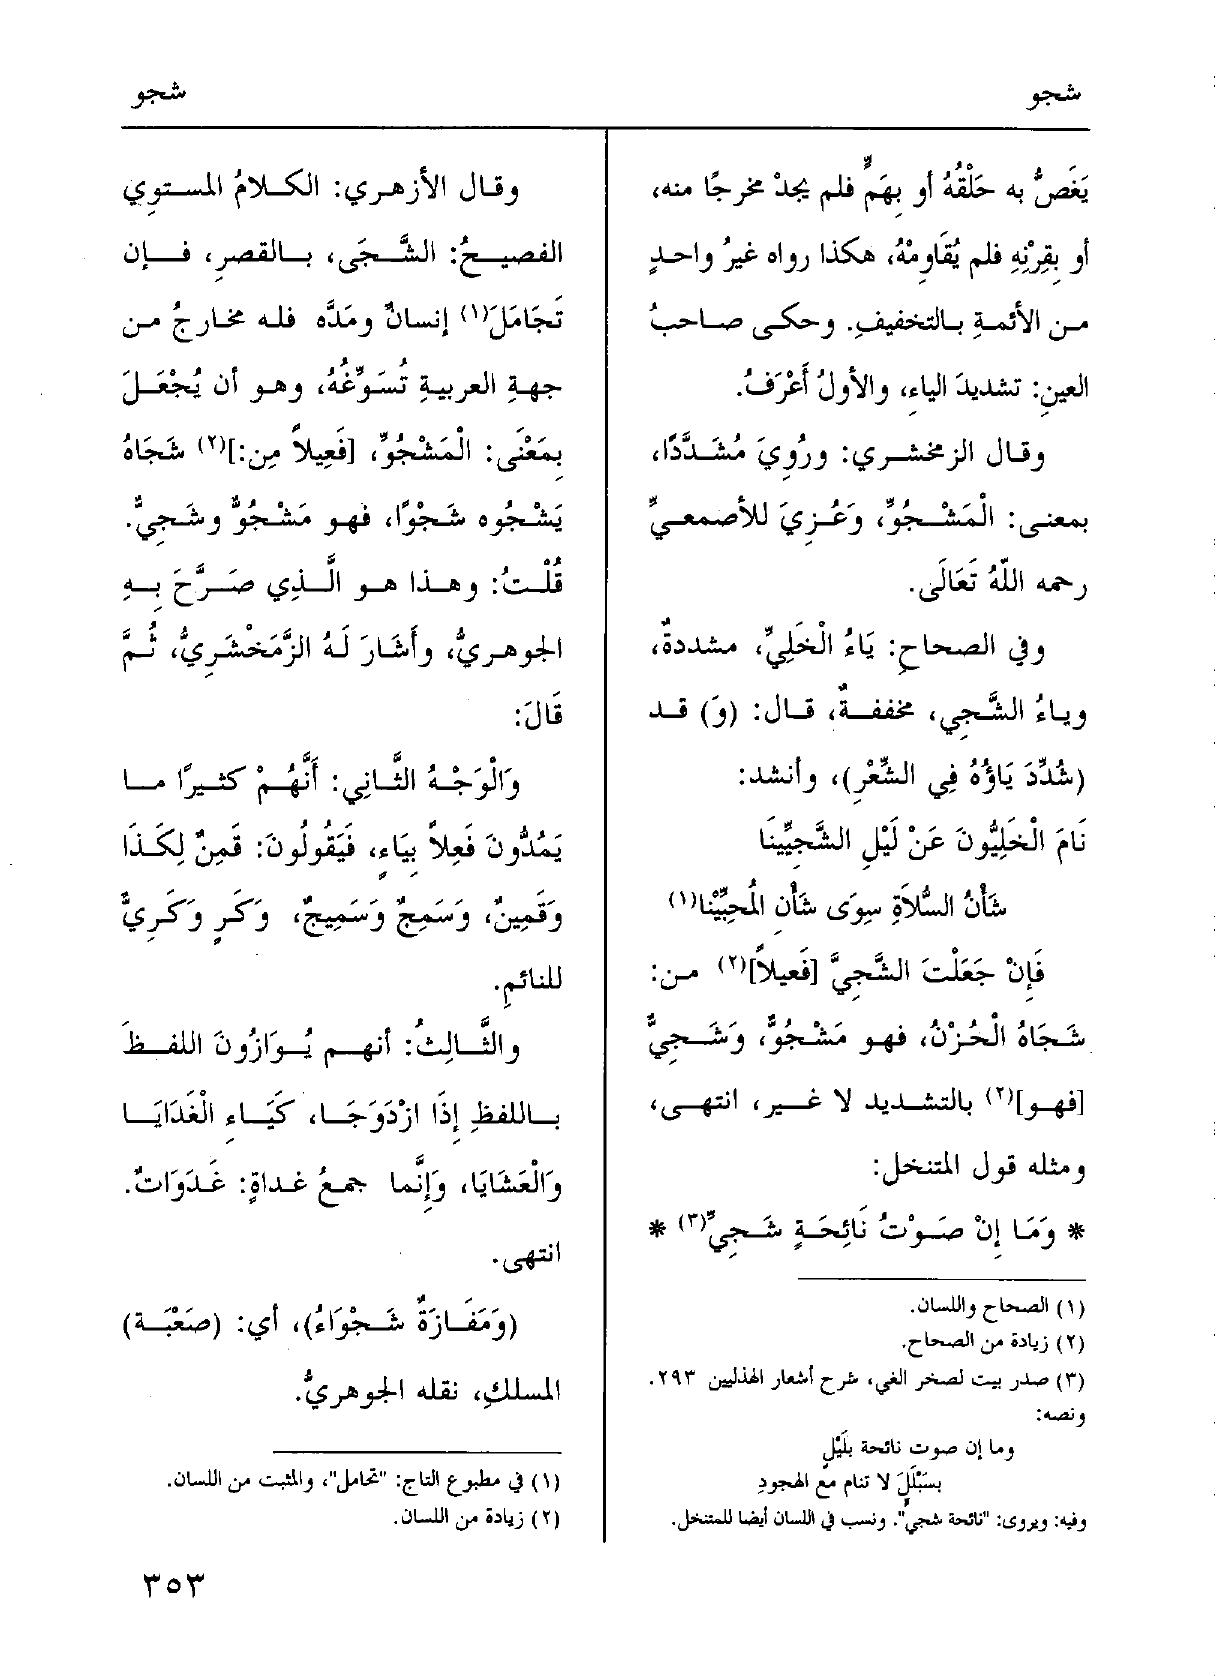 شجو
شجو
يَغَصُّ به حَلْقُهُ أو بِهَمٍّ فلم يجدْ مخرجًا منه،
أو بِقِرْنِهِ فلم يُقَاوِمْهُ، هكذا رواه غيرُ واحدٍ
من الأئمةِ بالتخفيفِ. وحكى صاحبُ
العينِ: تشديدَ الياء، والأولُ أَعْرَفُ.
وقال الزمخشري: ورُوِيَ مُشَدَّدًا،
بمعنى: الْمَشْجُوِّ، وَعُزِيَ للأصمعيِّ
رحمه اللّهُ تَعَالَى.
وفي الصحاحِ: يَاءُ الْخَلِيِّ، مشددةٌ،
وياءُ الشَّجِي، مخففةٌ، قال: (وَ) قد
(شُدِّدَ يَاؤُهُ فِي الشِّعْرِ)، وأنشد:
نَامَ الْخَلِيُّونَ عَنْ لَيْلِ الشَّجِيِّينَا
شَأْنُ السُّلَاةِ سِوَى شَأْنِ الْمُحِبِّيْنَا(١)
فَإِنْ جَعَلْتَ الشَّجِيَّ [فَعِيلاً](٢) من:
شَجَاهُ الْحُزْنُ، فهو مَشْجُوٌّ، وَشَجِيٌّ
[فهو](٢) بالتشديد لا غير، انتهى،
ومثله قول المتنخل:
* وَمَا إِنْ صَوْتُ نَائِحَةٍ شَجِيٍّ(٣) *
(١) الصحاح واللسان.
(٢) زيادة من الصحاح.
(٣) صدر بيت لصخر الغي، شرح أشعار الهذليين ٢٩٣.
ونصه:
وما إن صوت نائحة بلَيْلٍ
بسَبْلَلَ لا تنام مع الهجودِ
وفيه: ويروى: "نائحة شجيٍّ". ونسب في اللسان أيضا للمتنخل.
وقال الأزهري: الكلامُ المستوِي
الفصيحُ: الشَّجَى، بالقصرِ، فإن
تَجَامَلَ(١) إنسانٌ ومَدَّه فله مخارجُ من
جهةِ العربيةِ تُسَوِّغُهُ، وهو أن يُجْعَلَ
بِمَعْنَى: الْمَشْجُوِّ، [فَعِيلاً مِن:](٢) شَجَاهُ
يَشْجُوه شَجْوًا، فهو مَشْجُوٌّ وشَجِيٌّ.
قُلْتُ: وهذا هو الَّذِي صَرَّحَ بِهِ
الجوهريُّ، وأَشَارَ لَهُ الزَّمَخْشَرِيُّ، ثُمَّ
قَالَ:
وَالْوَجْهُ الثَّانِي: أَنَّهُمْ كثيرًا ما
يَمُدُّونَ فَعِلاً بِيَاءٍ، فَيَقُولُونَ: قَمِنٌ لِكَذَا
وَقَمِينٌ، وَسَمِجٌ وَسَمِيجٌ، وَكَرٍ وَكَرِيٌّ
للنائمِ.
والثَّالِثُ: أنهم يُوَازُونَ اللفظَ
باللفظِ إِذَا ازْدَوَجَا، كَيَاءِ الْغَدَايَا
وَالْعَشَايَا، وَإِنَّما جمعُ غداةٍ: غَدَوَاتٌ.
انتهى.
(وَمَفَازَةٌ شَجْوَاءُ)، أي: (صَعْبَة)
المسلكِ، نقله الجوهريُّ.
(١) في مطبوع التاج: "تحامل"، والمثبت من اللسان.
(٢) زيادة من اللسان.
٣٥٣